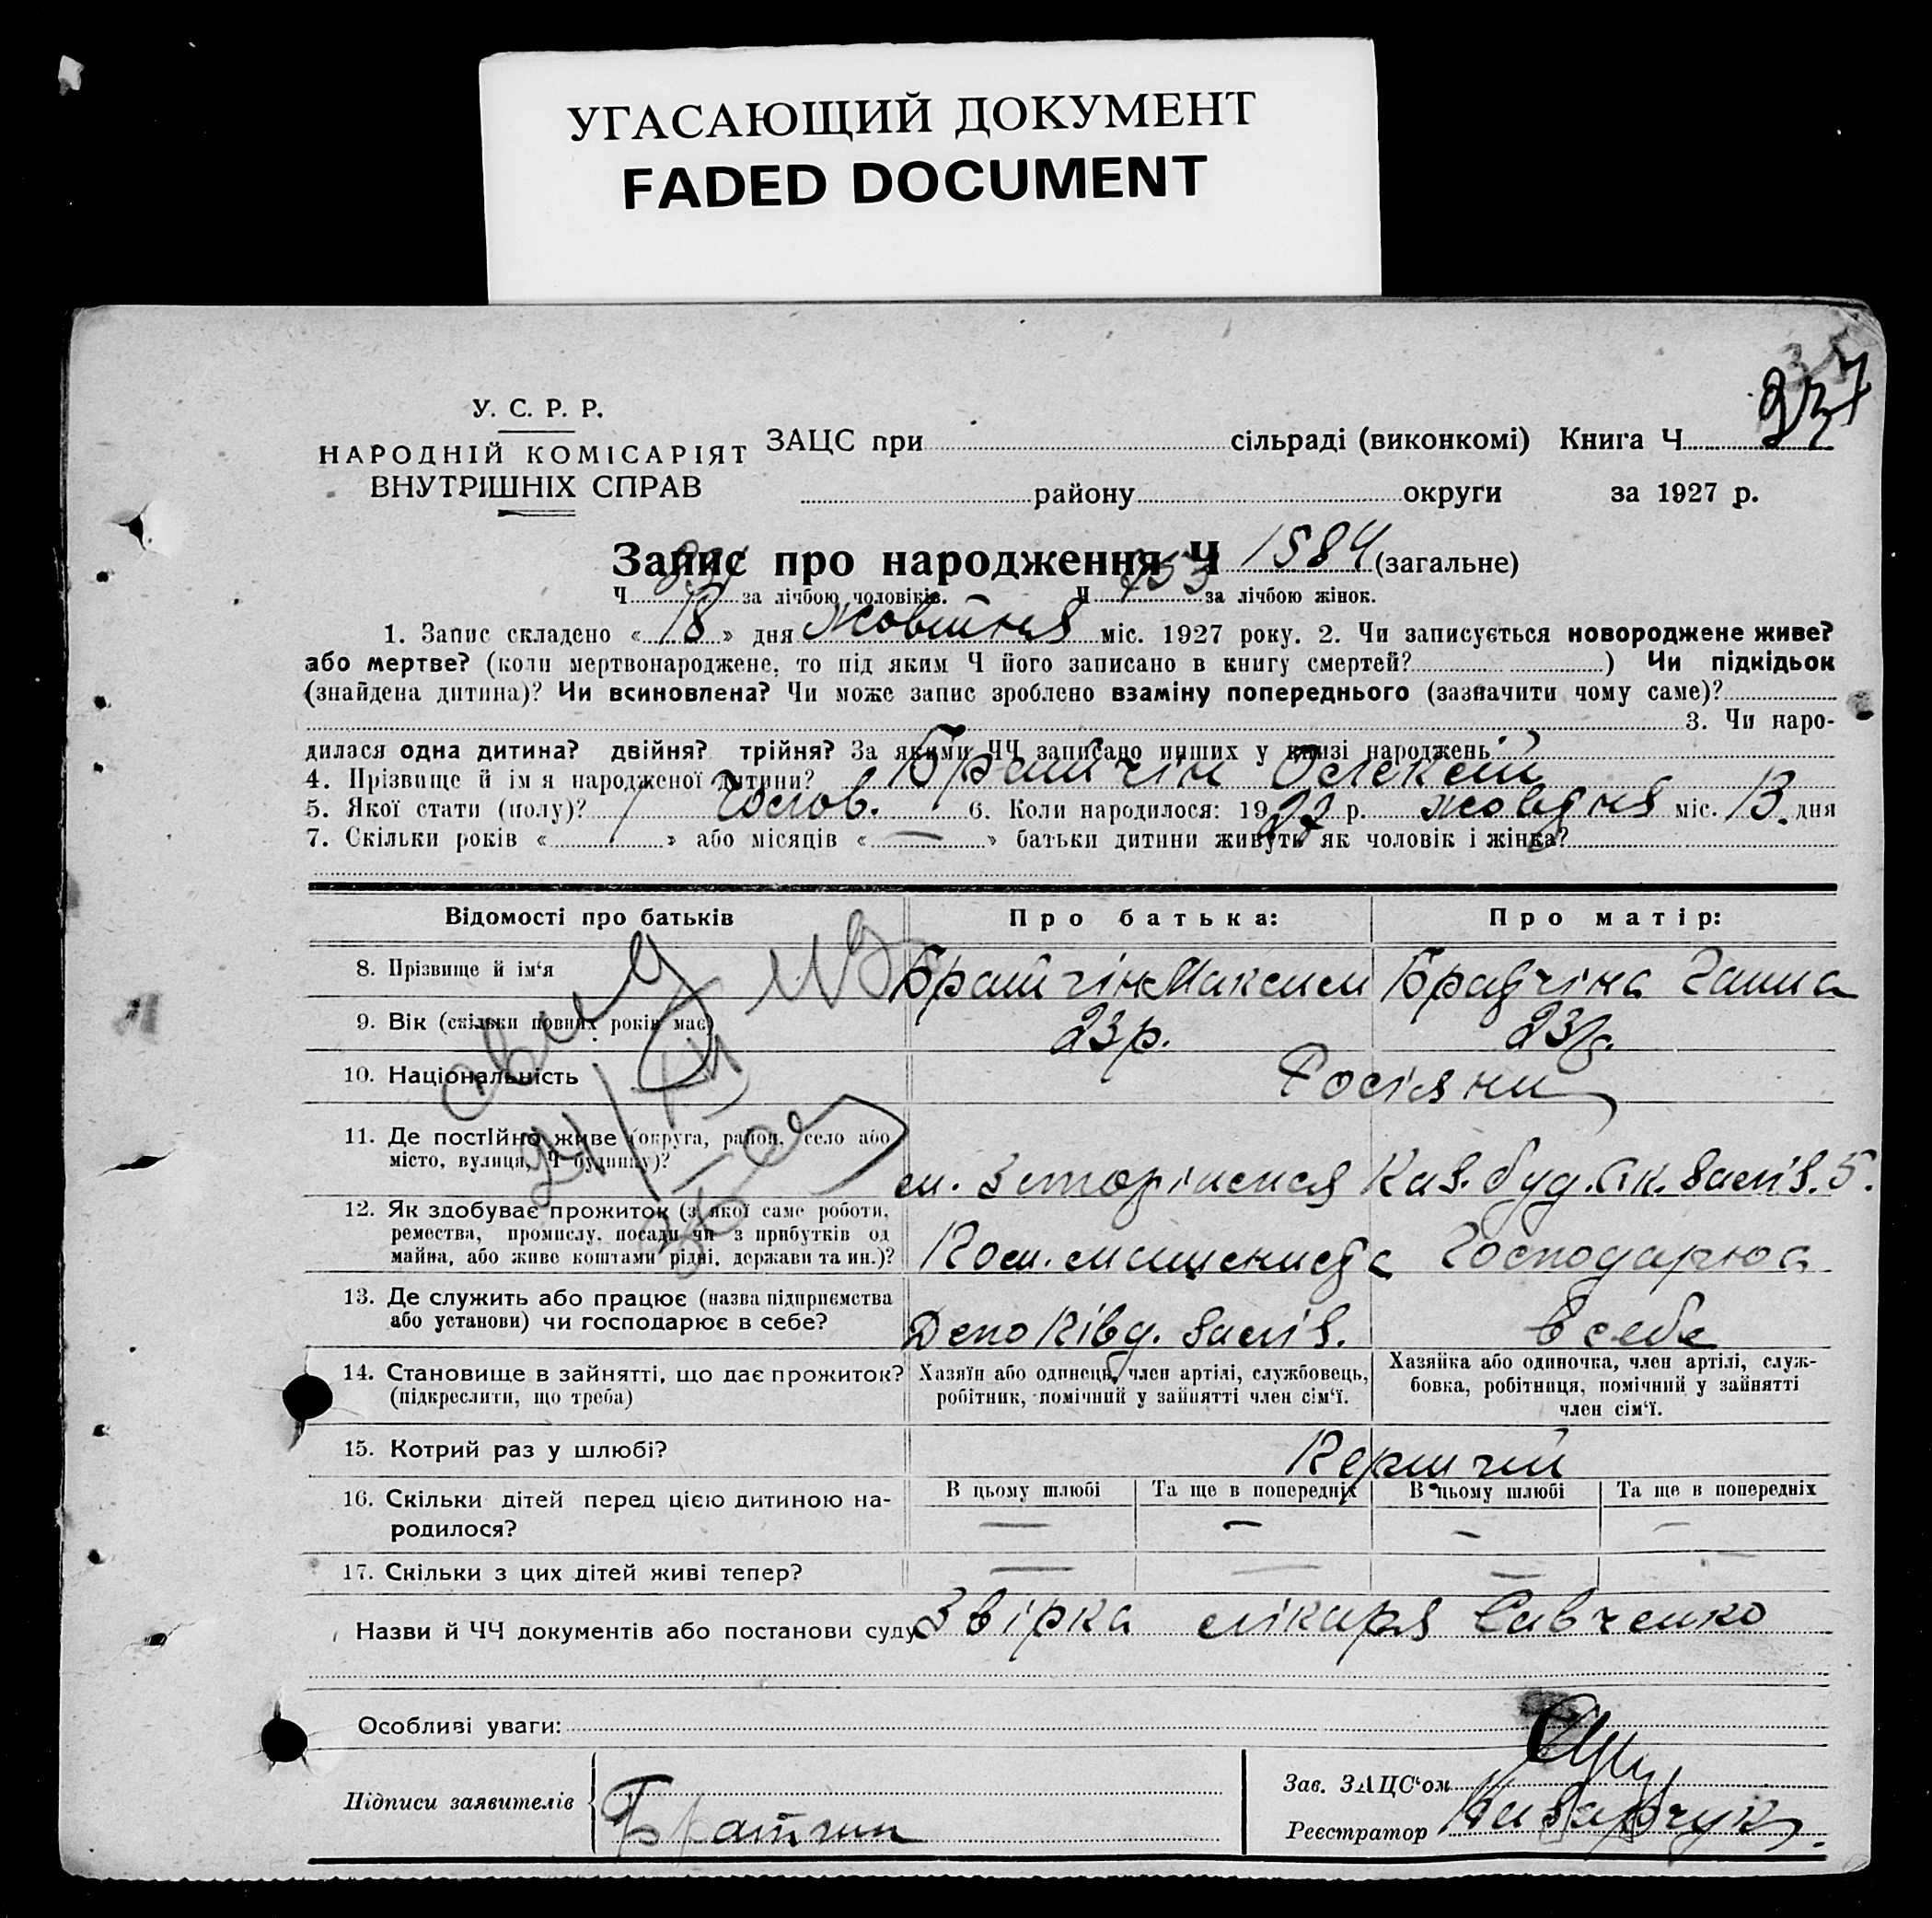 УГАСАЮЩИЙ ДОКУМЕНТ
FADED DOCUMENT
У. С. Р. Р.
НАРОДНІЙ КОМІСАРІЯТ
ВНУТРІШНІХ СПРАВ
ЗАЦС при сільраді (виконкомі) Книга Ч
району округи за 1927 р.
Запис про народження Ч 1584 (загальне)
Ч за лічбою чоловіків. Ч 753 за лічбою жінок.
1. Запис складено « 18 » дня жовтня міс. 1927 року. 2. Чи записується новороджене живе?
або мертве? (коли мертвонароджене, то під яким Ч його записано в книгу смертей? ) Чи підкідьок
(знайдена дитина)? Чи всиновлена? Чи може запис зроблено взаміну попереднього (зазначити чому саме)?
3. Чи наро-
дилася одна дитина? двійня? трійня? За якими ЧЧ записано инших у книзі народжень
4. Прізвище й ім я народженої дитини? Братчін Олексій
5. Якої стати (полу)? Чолов. 6. Коли народилося: 1927 р. жовтня міс. 13. дня
7. Скільки років « 1 » або місяців « — » батьки дитини живуть як чоловік і жінка?
Відомості про батьків Про батька: Про матір:
8. Прізвище й ім‘я Братчін Максим Братчіна Ганна
9. Вік (скільки повних років має) 23 р. 23 р.
10. Національність Росіяни
11. Де постійно живе (округа, район, село або
місто, вулиця, Ч будинку)?
буд. 5.
12. Як здобуває прожиток (з якої саме роботи,
ремества, промислу, посади чи з прибутків од
майна, або живе коштами рідні, держави та ин.)?
Пом. машиниста Господарює
13. Де служить або працює (назва підприємства
або установи) чи господарює в себе?
Депо Півд. заліз. в себе
14. Становище в зайнятті, що дає прожиток?
(підкреслити, що треба)
Хазяїн або одинець, член артілі, службовець,
робітник, помічний у зайнятті член сім‘ї.
Хазяйка або одиночка, член артілі, служ-
бовка, робітниця, помічний у зайнятті
член сім‘ї.
15. Котрий раз у шлюбі? Перший
16. Скільки дітей перед цією дитиною на-
родилося?
В цьому шлюбі Та ще в попередніх В цьому шлюбі Та ще в попередніх
— — — —
17. Скільки з цих дітей живі тепер? — — —
Назви й ЧЧ документів або постанови суду Звірка лікаря Савченко
Особливі уваги:
Підписи заявителів Братчин
Зав. ЗАЦС‘ом
Реєстратор